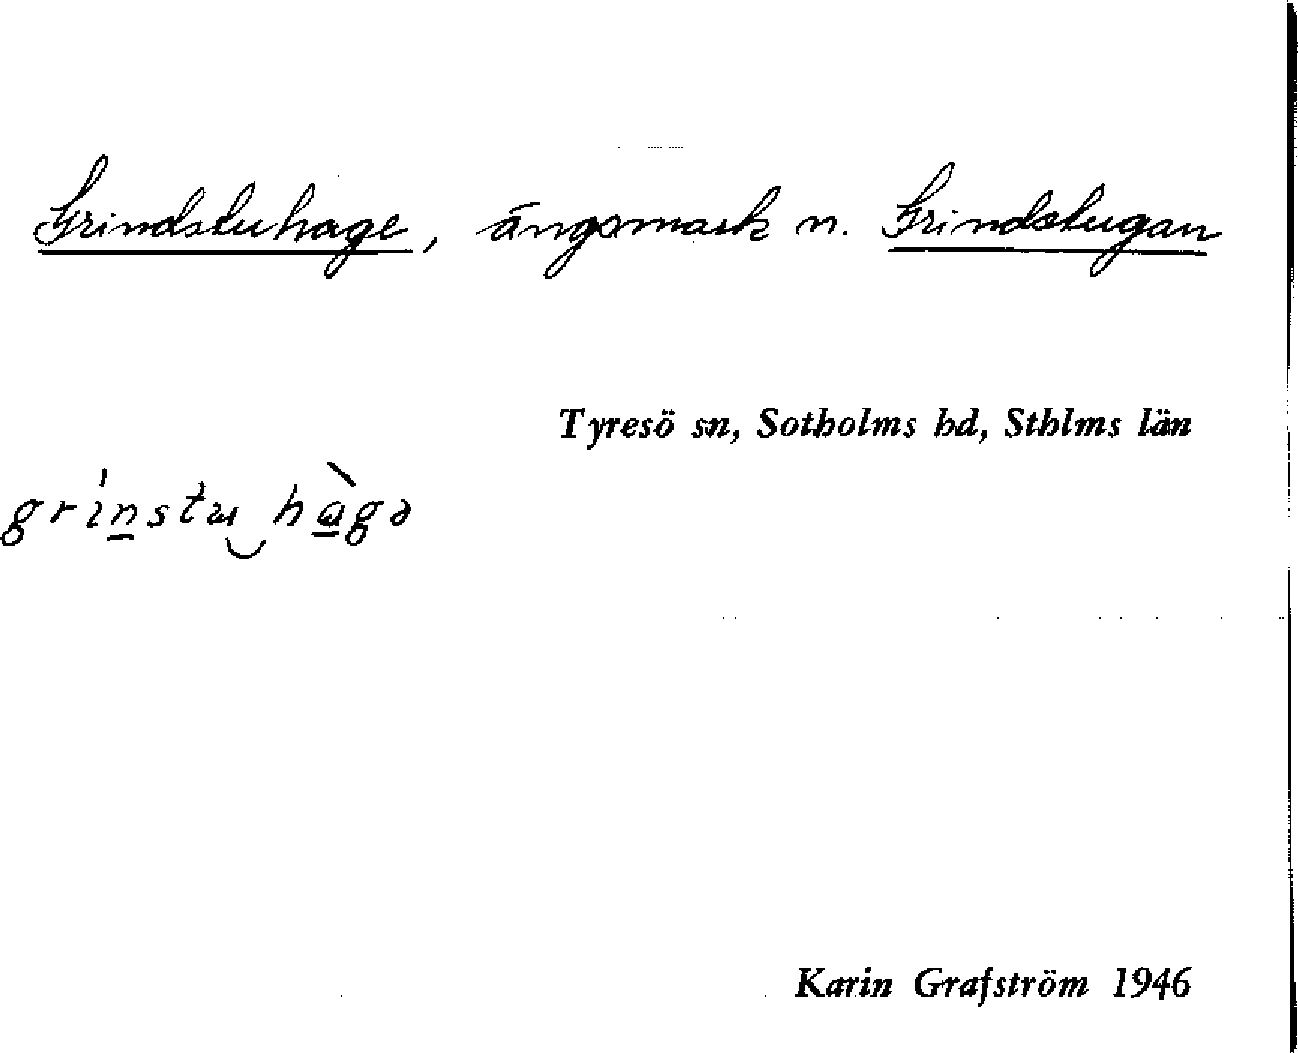 Grindstuhage, ängsmark n. Grindstugan
Tyresö sn, Sotholms hd, Sthlms län
grínstu‿hàgə
Karin Grafström 1946